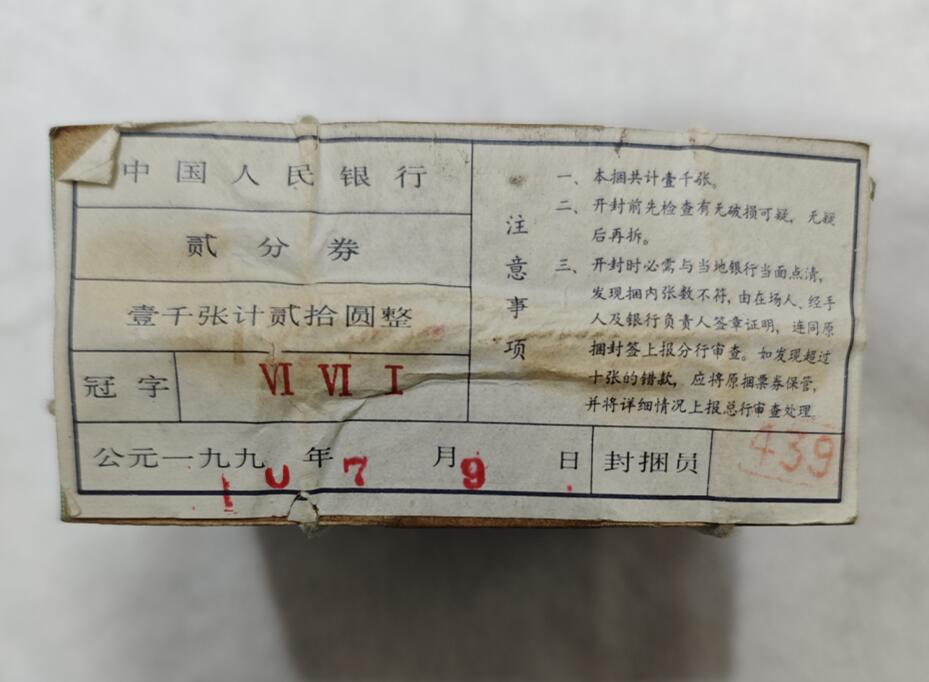 中国人民银行
贰分券
壹千张计贰拾圆整
冠字 VI VI I
公元一九九 年 月 日 封捆员
10 7 9
439
注意事项
一、本捆共计壹千张。
二、开封前先检查有无破损可疑，无疑
后再拆。
三、开封时必需与当地银行当面点清，
发现捆内张数不符，由在场人、经手
人及银行负责人签章证明，连同原
捆封签上报分行审查。如发现超过
十张的错款，应将原捆票券保管，
并将详细情况上报总行审查处理。